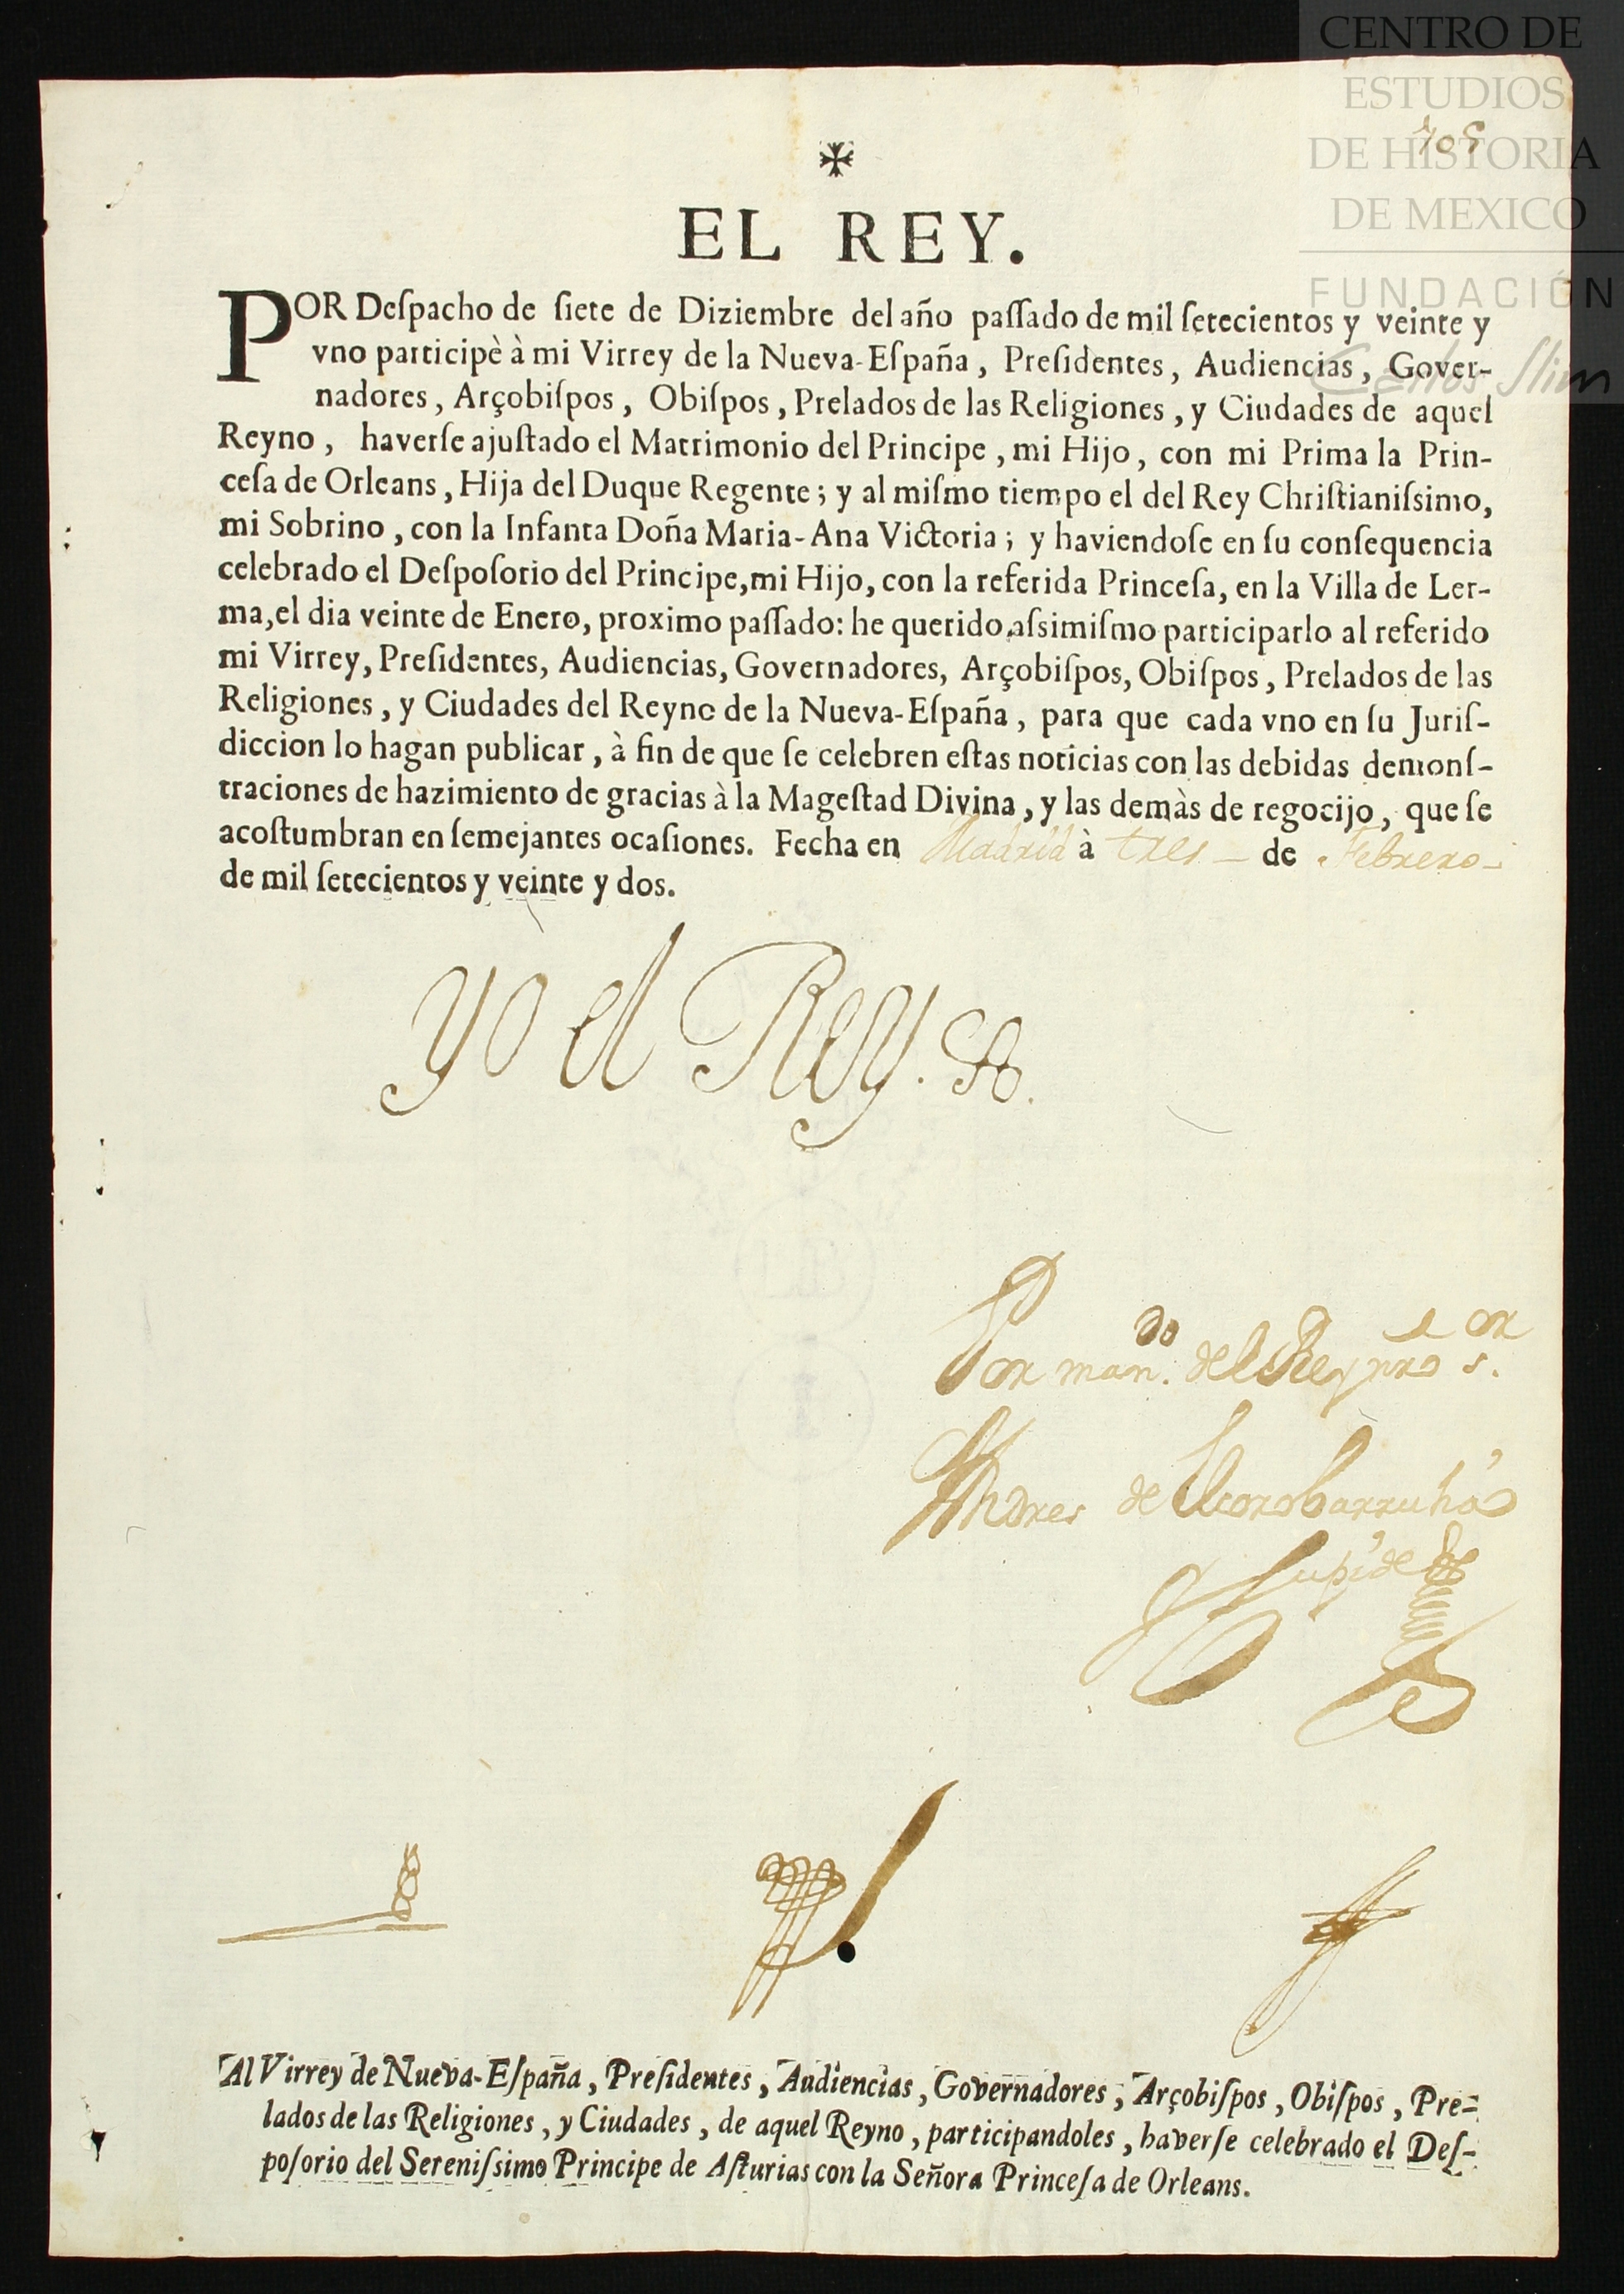 CENTRO DE
ESTUDIOS
DE HISTORIA
DE MEXICO
FUNDACIÓN
Carlos Slim
✠
EL REY.
POR Deſpacho de ſiete de Diziembre del año paſſado de mil ſetecientos y veinte y
vno participè à mi Virrey de la Nueva-Eſpaña, Preſidentes, Audiencias, Gover-
nadores, Arçobiſpos, Obiſpos, Prelados de las Religiones, y Ciudades de aquel
Reyno, haverſe ajuſtado el Matrimonio del Principe, mi Hijo, con mi Prima la Prin-
ceſa de Orleans, Hija del Duque Regente; y al miſmo tiempo el del Rey Chriſtianiſsimo,
mi Sobrino, con la Infanta Doña Maria-Ana Victoria; y haviendoſe en ſu conſequencia
celebrado el Deſpoſorio del Principe, mi Hijo, con la referida Princeſa, en la Villa de Ler-
ma, el dia veinte de Enero, proximo paſſado: he querido aſsimiſmo participarlo al referido
mi Virrey, Preſidentes, Audiencias, Governadores, Arçobiſpos, Obiſpos, Prelados de las
Religiones, y Ciudades del Reyno de la Nueva-Eſpaña, para que cada vno en ſu Juriſ-
diccion lo hagan publicar, à fin de que ſe celebren eſtas noticias con las debidas demonſ-
traciones de hazimiento de gracias à la Mageſtad Divina, y las demàs de regocijo, que ſe
acoſtumbran en ſemejantes ocaſiones. Fecha en Madrid à tres de Febrero
de mil ſetecientos y veinte y dos.
Yo el Rey.
Por man.do del Rey nro s.or
Andres de
Al Virrey de Nueva-Eſpaña, Preſidentes, Audiencias, Governadores, Arçobiſpos, Obiſpos, Pre-
lados de las Religiones, y Ciudades, de aquel Reyno, participandoles, haverſe celebrado el Deſ-
poſorio del Sereniſsimo Principe de Aſturias con la Señora Princeſa de Orleans.